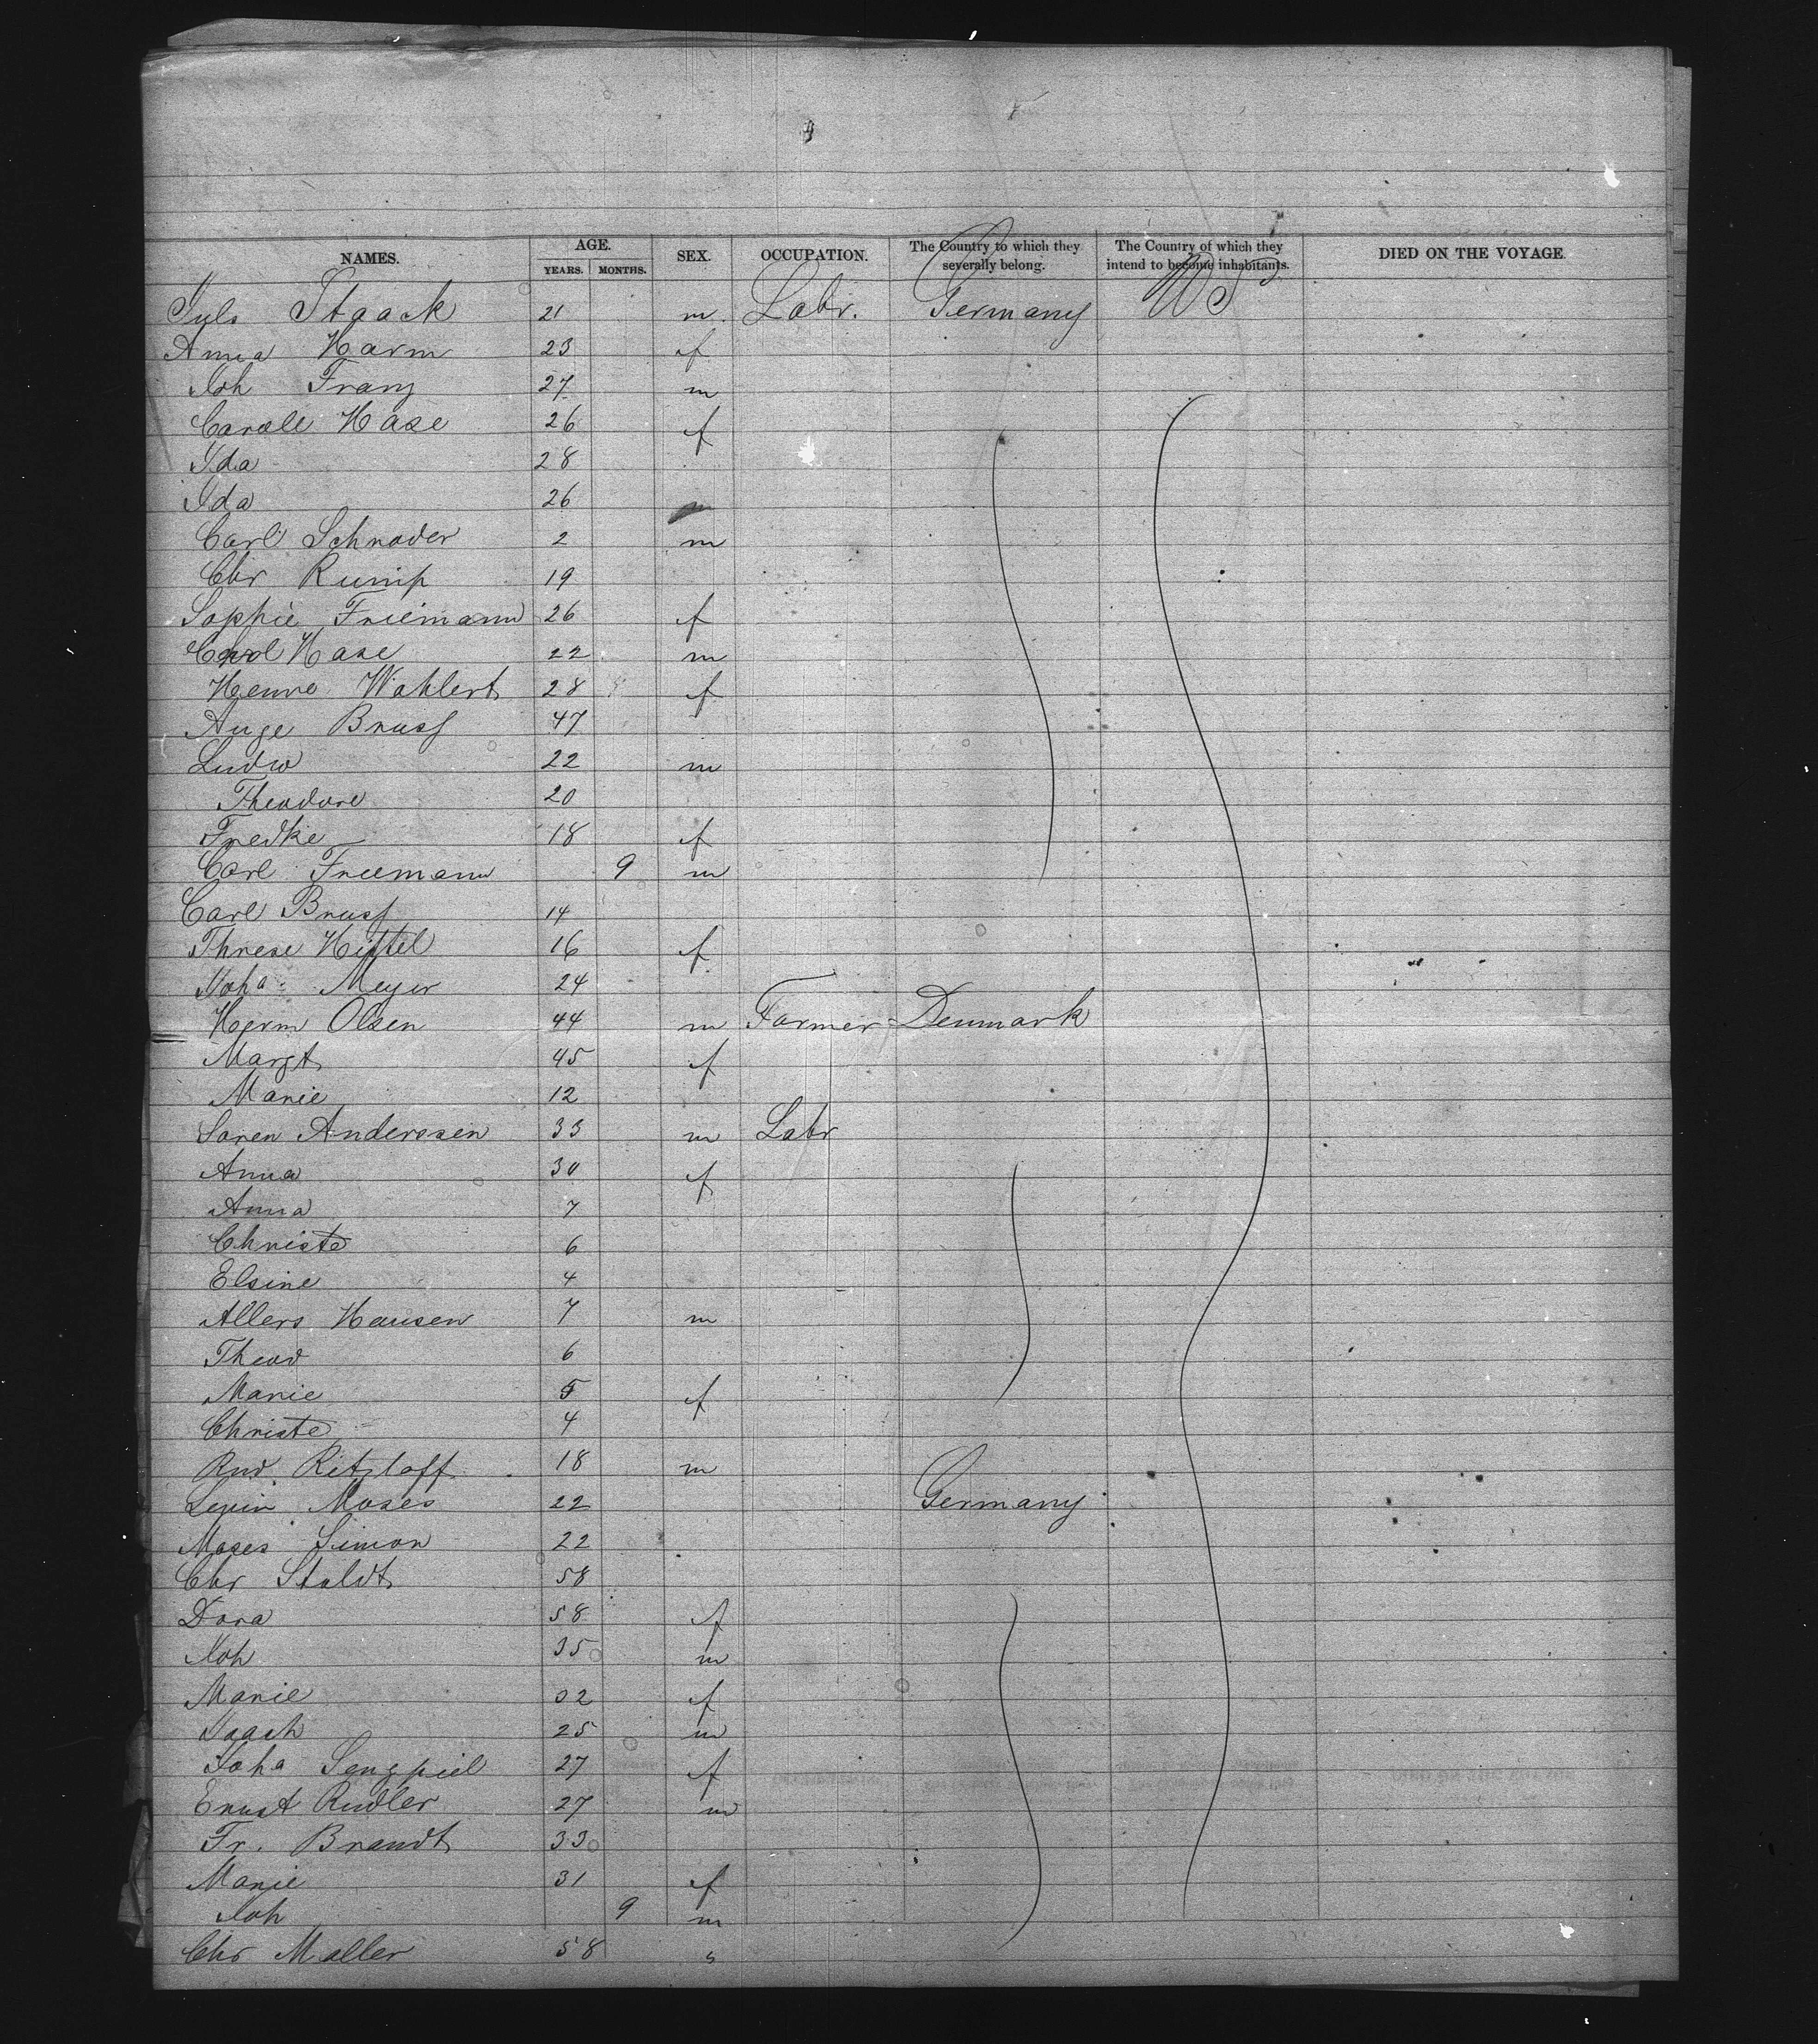 NAMES. AGE. YEARS. MONTHS. SEX. OCCUPATION. The Country to which they severally belong. The Country of which they intend to become inhabitants. DIED ON THE VOYAGE.
Juls Staack 21 m. Labr. Germany US
Anna Harm 23 f
Joh Franz 27 m
Carole Hase 26 f
Ida 28
Ida 26
Carl Schroder 2 m
Chr Rumip 19
Sophie Friemann 26 f
Carol Hase 22 m
Henre Wahlert 28 f
Auge Brusf 47
Ludw 22 m
Theodore 20
Fredke 18 f
Carl Freemann 9 m
Carl Brusf 14
Threse Hiftel 16 f
Joha Meyer 24
Herm Olsen 44 m Farmer Denmark
Margt 45 f
Marie 12
Soren Anderssen 33 m Labr
Anna 30 f
Anna 7
Christe 6
Elsine 4
Allers Hansen 7 m
Theod 6
Marie 5 f
Christe 4
Rud. Retzlaff 18 m
Levin Moses 22 Germany
Moses Simon 22
Chr Staldt 58
Dora 58 f
Joh 35 m
Marie 32 f
Joach 25 m
Joha Sengpiel 27 f
Ernst Rudler 27 m
Fr. Brandt 33
Marie 31 f
Joh 9 m
Chr Maller 58